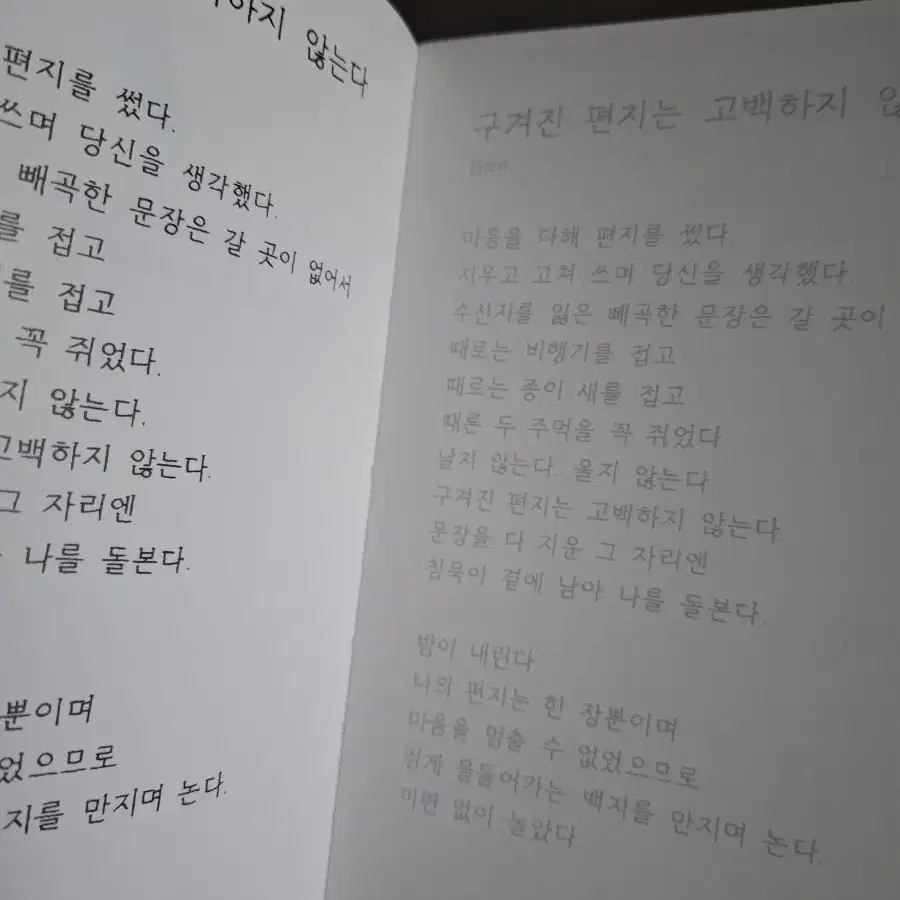 하지 않는다
편지를 썼다.
쓰며 당신을 생각했다.
빼곡한 문장은 갈 곳이 없어서
를 접고
를 접고
꼭 쥐었다.
지 않는다.
고백하지 않는다.
그 자리엔
나를 돌본다.
뿐이며
었으므로
지를 만지며 논다.
구겨진 편지는 고백하지
마음을 다해 편지를 썼다.
지우고 고쳐 쓰며 당신을 생각했다.
수신자를 잃은 빼곡한 문장은 갈 곳이
때로는 비행기를 접고
때로는 종이 새를 접고
때론 두 주먹을 꼭 쥐었다.
날지 않는다. 울지 않는다.
구겨진 편지는 고백하지 않는다.
문장을 다 지운 그 자리엔
침묵이 곁에 남아 나를 돌본다.
밤이 내린다
나의 편지는 한 장뿐이며
마음을 멈출 수 없었으므로
검게 물들어가는 백지를 만지며 논다.
미련 없이 놓았다